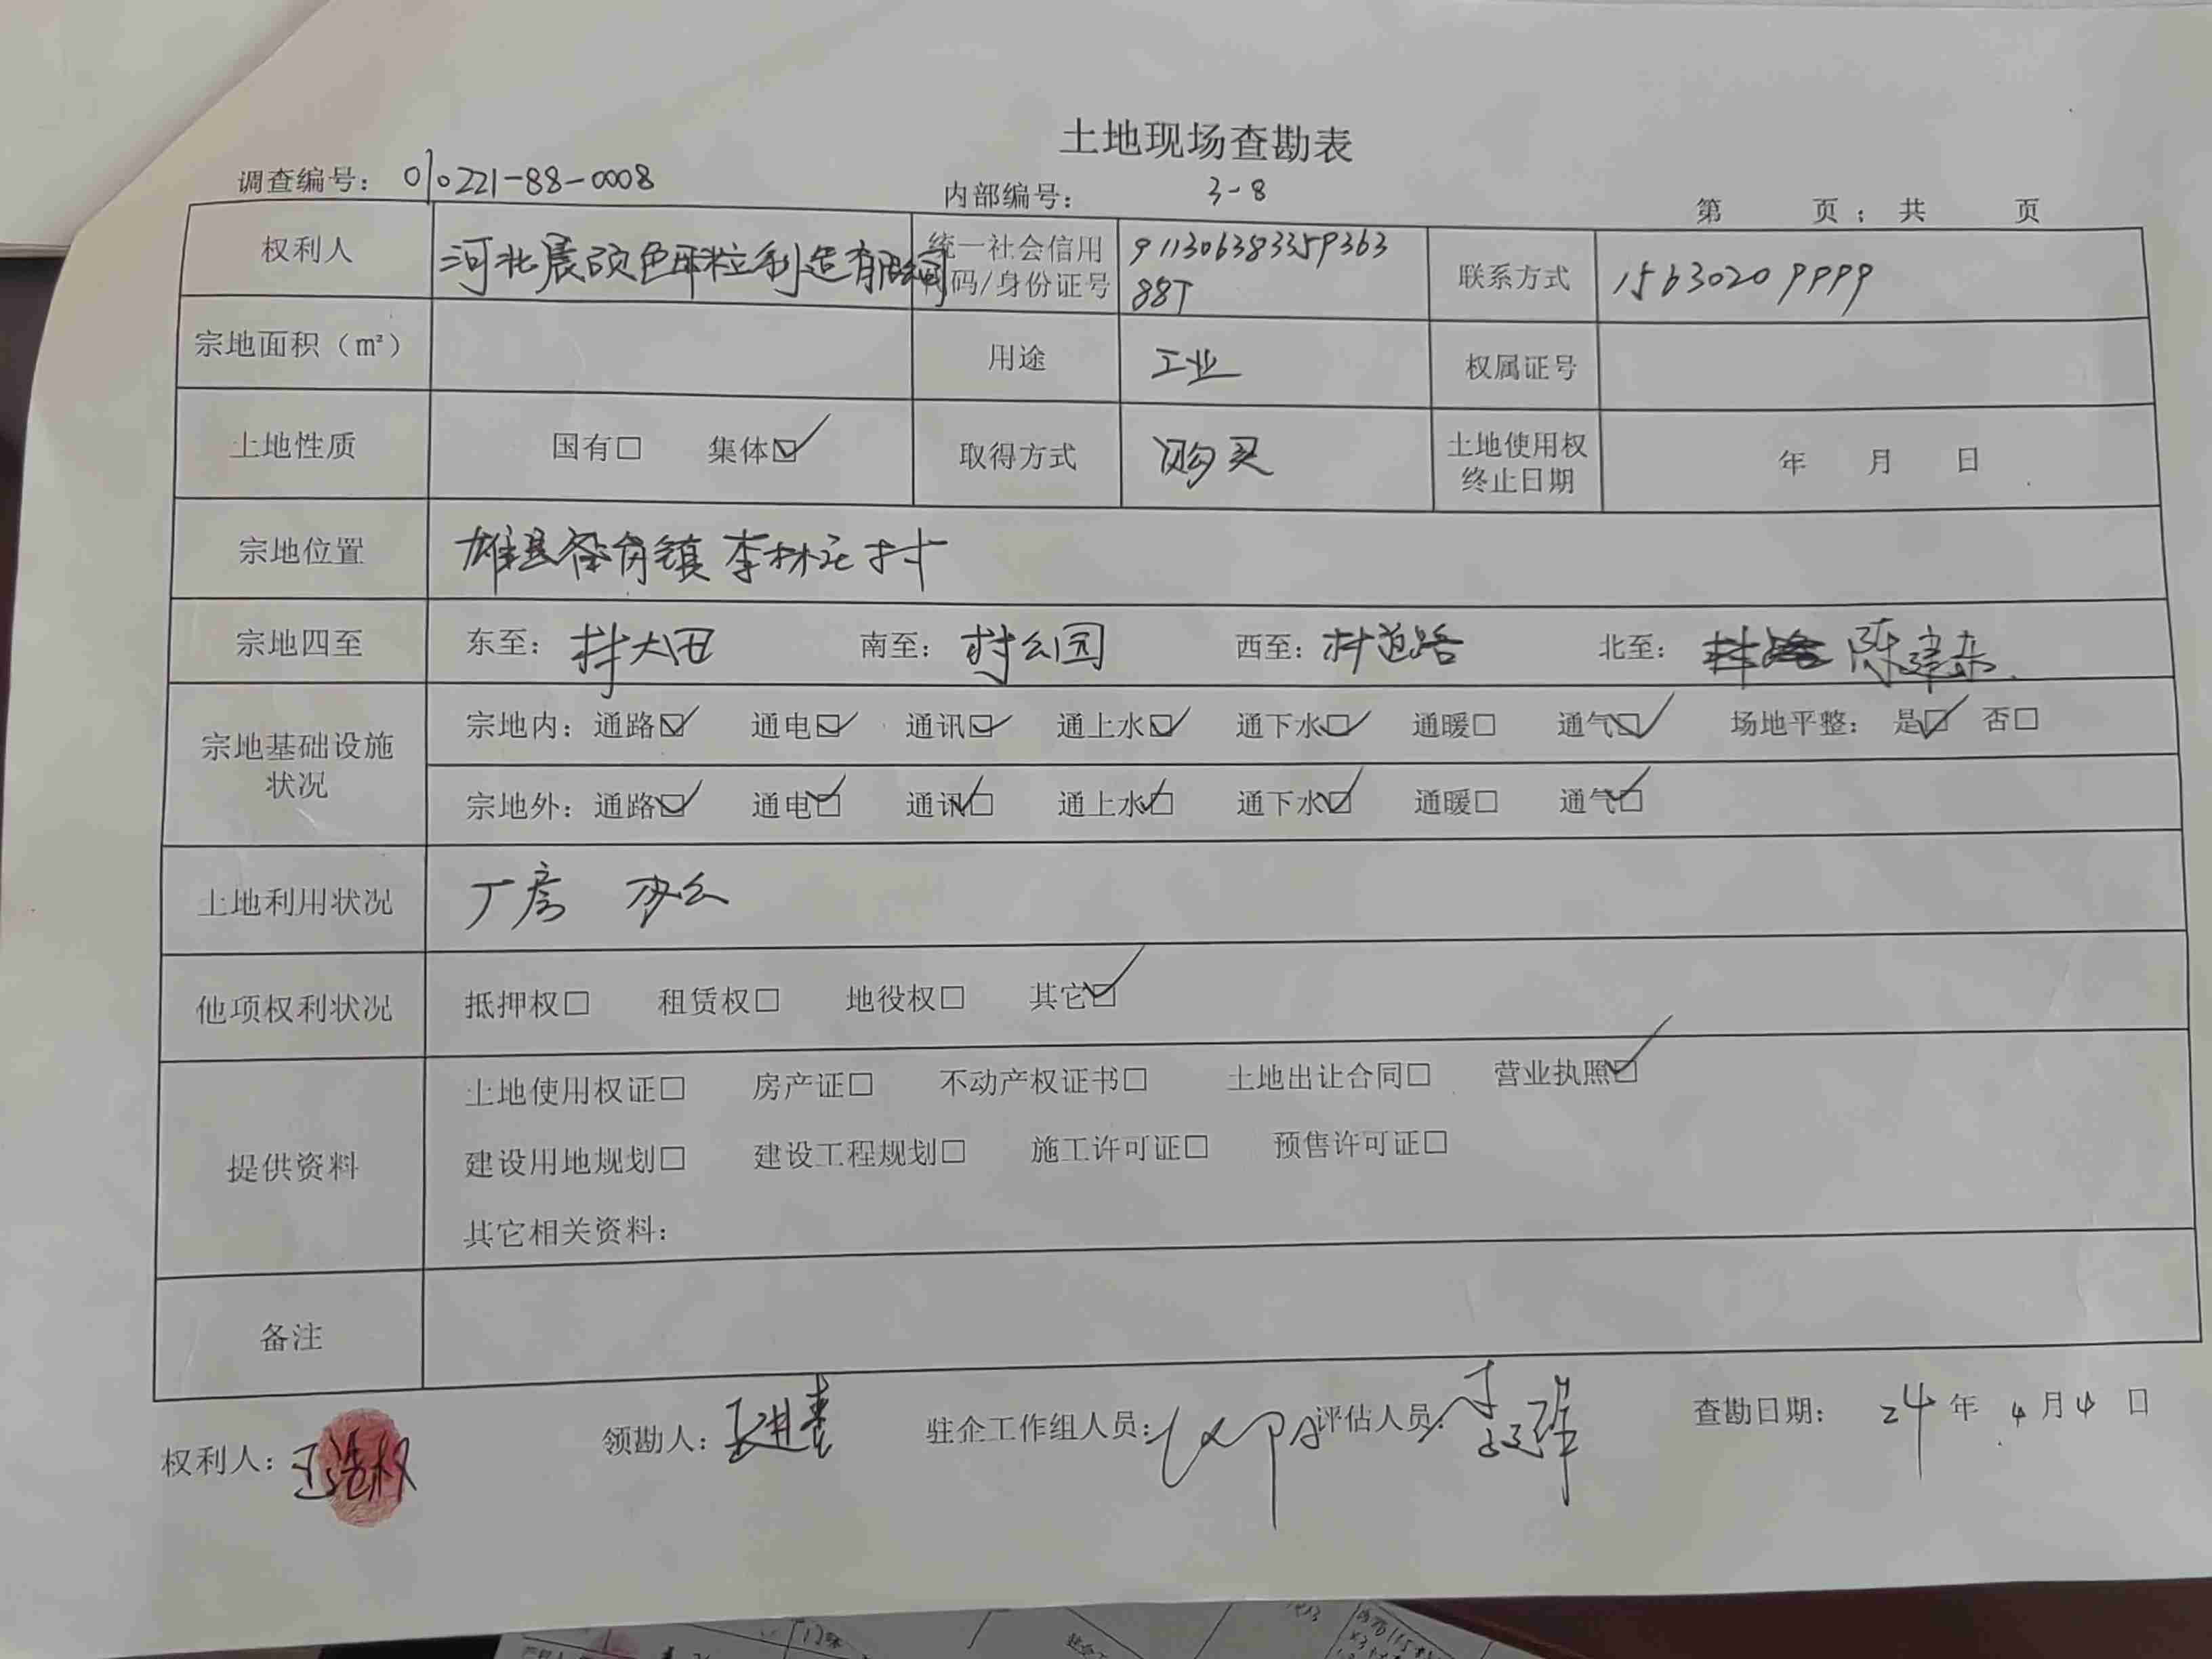 土地现场查勘表
调查编号： 010221-88-0008 内部编号： 3-8 第 页；共 页
权利人 河北晨硕色母粒制造有限公司 统一社会信用代码/身份证号 91130638335936388T 联系方式 15630209999
宗地面积（m²） 用途 工业 权属证号
土地性质 国有□ 集体☑ 取得方式 购买 土地使用权终止日期 年 月 日
宗地位置 雄县 镇李林庄村
宗地四至 东至：村大田 南至：村公园 西至：村道路 北至： 陈建
宗地基础设施状况 宗地内：通路☑ 通电☑ 通讯☑ 通上水☑ 通下水☑ 通暖□ 通气☑ 场地平整： 是☑ 否□
宗地外：通路☑ 通电☑ 通讯☑ 通上水☑ 通下水☑ 通暖□ 通气☑
土地利用状况 厂房 办公
他项权利状况 抵押权□ 租赁权□ 地役权□ 其它☑
提供资料 土地使用权证□ 房产证□ 不动产权证书□ 土地出让合同□ 营业执照☑
建设用地规划□ 建设工程规划□ 施工许可证□ 预售许可证□
其它相关资料：
备注
权利人： 领勘人： 驻企工作组人员： 评估人员： 查勘日期： 24 年 4 月 4 日